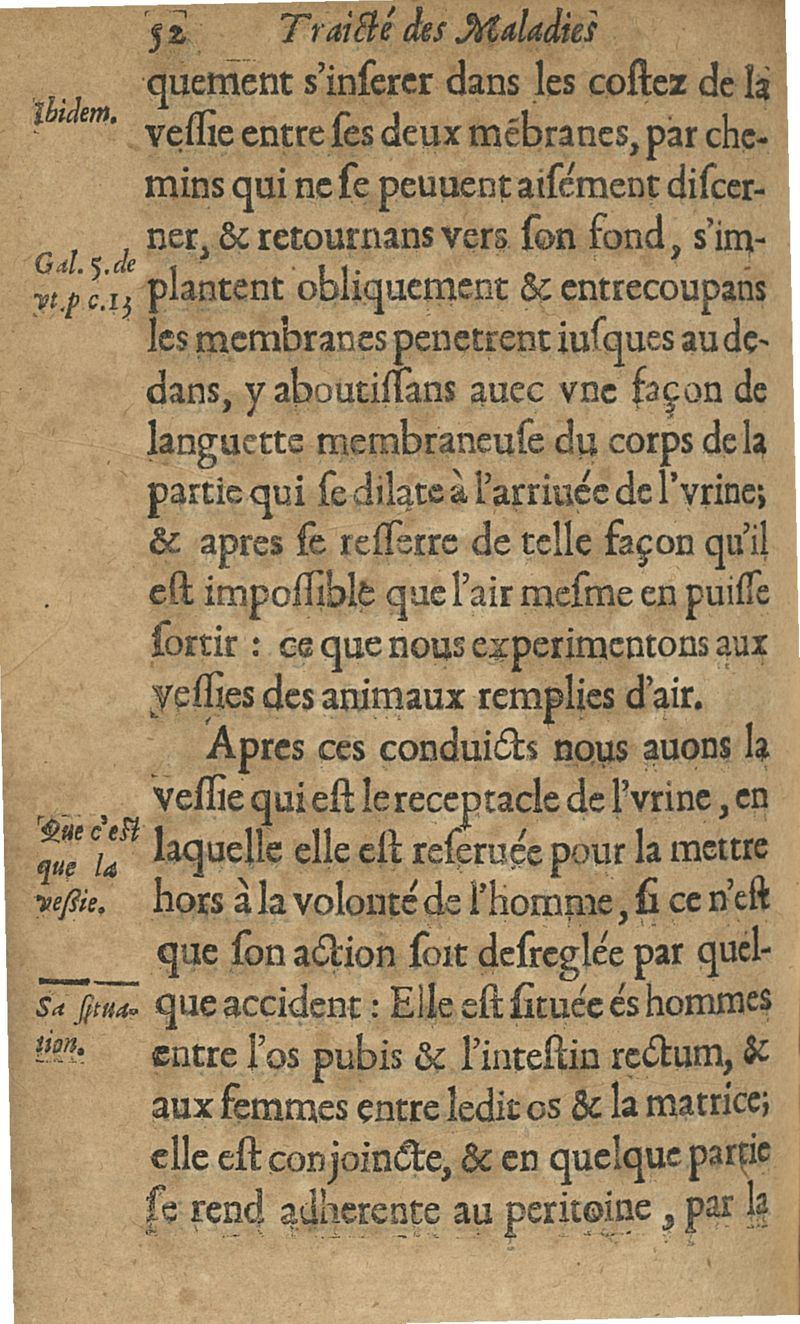 52 Traicté des Maladies
quement s'inſerer dans les coſtez de la
Ibidem.
veſſie entre ſes deux mēbranes, par che-
mins qui ne ſe peuuent aiſément diſcer-
ner, & retournans vers ſon fond, s'im-
Gal. 5. de
vt. p c. 13
plantent obliquement & entrecoupans
les membranes penetrent iuſques au de-
dans, y aboutiſſans auec vne façon de
languette membraneuſe du corps de la
partie qui ſe dilate à l'arriuée de l'vrine;
& apres ſe reſſerre de telle façon qu'il
eſt impoſſible que l'air meſme en puiſſe
ſortir : ce que nous experimentons aux
veſſies des animaux remplies d'air.
Apres ces conduicts nous auons la
veſſie qui eſt le receptacle de l'vrine, en
Que c'eſt
que la
veßie.
laquelle elle eſt reſeruée pour la mettre
hors à la volonté de l'homme, ſi ce n'eſt
que ſon action ſoit deſreglée par quel-
Sa ſitua-
tion.
que accident : Elle eſt ſituée és hommes
entre l'os pubis & l'inteſtin rectum, &
aux femmes entre ledit os & la matrice;
elle eſt conjoincte, & en quelque partie
ſe rend adherente au peritoine, par la